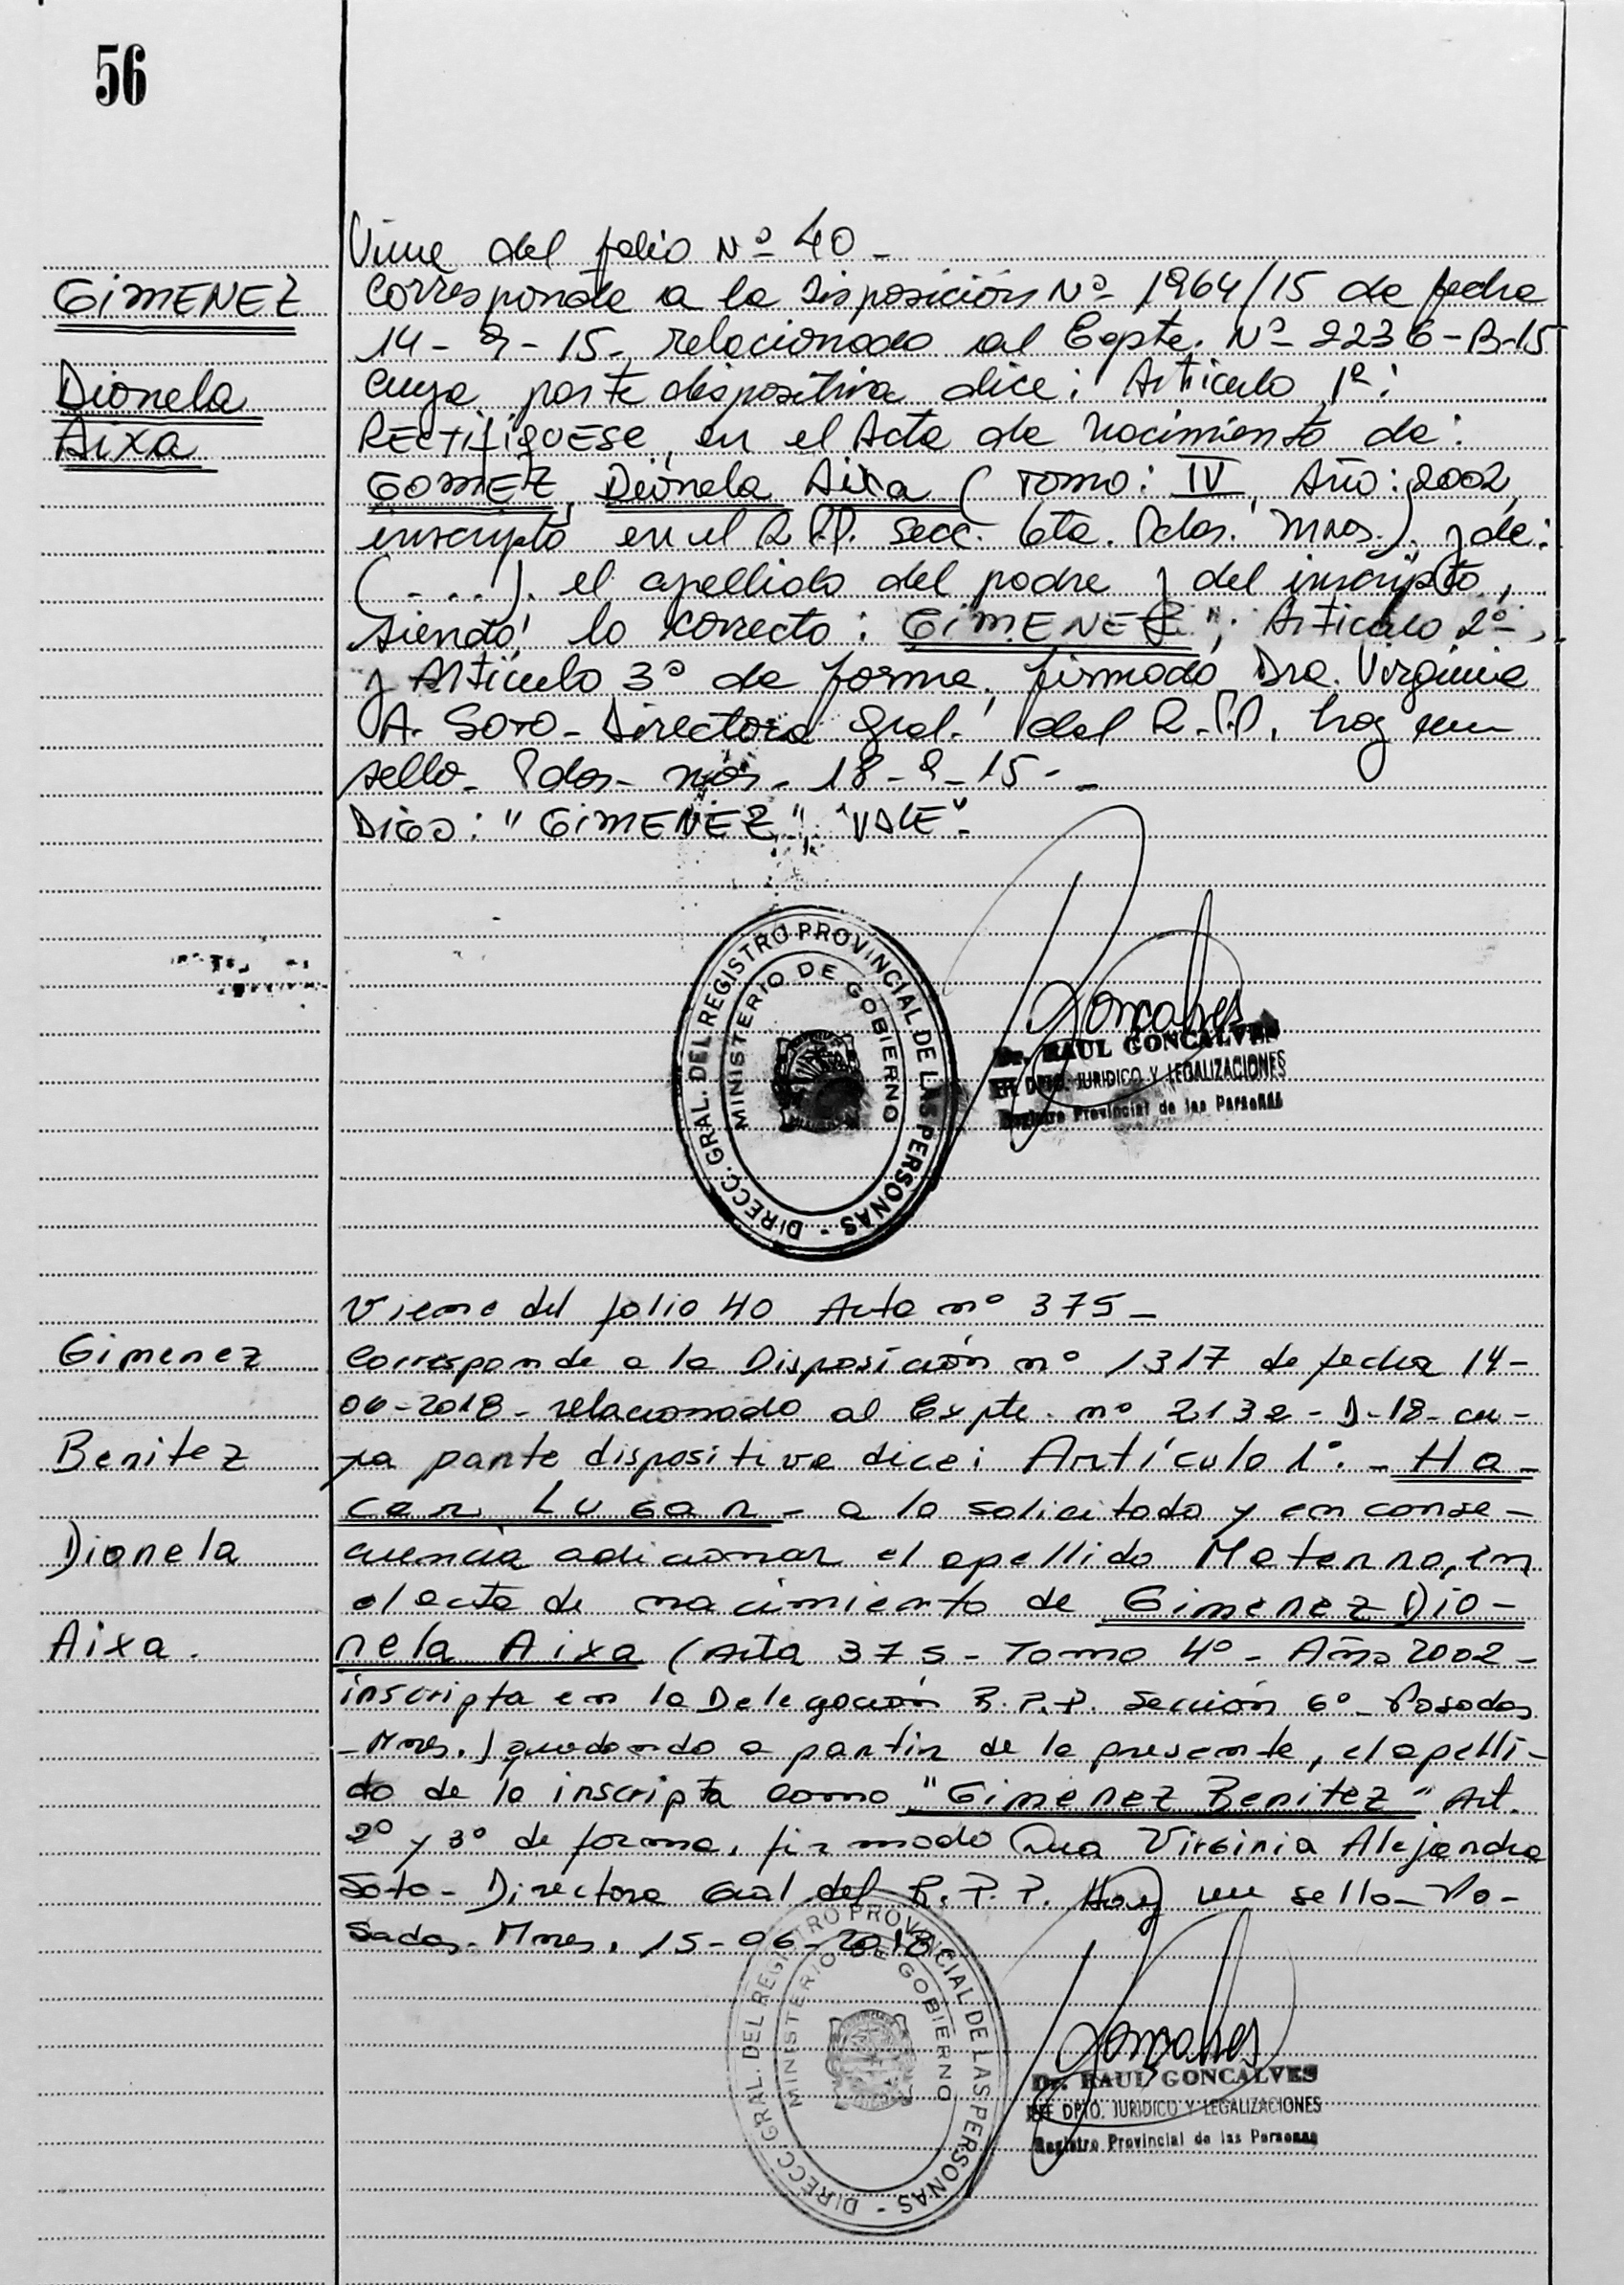 56
Viene del folio Nº 40 -
GIMENEZ
Corresponde a la Disposición Nº 1964/15 de fecha
14-9-15, relacionado al Expte. Nº 2236-B-15
Dionela
cuya parte dispositiva dice: Artículo 1º:
Aixa
RECTIFIQUESE, en el Acta de Nacimiento de:
GOMEZ, Dionela Aixa (Tomo: IV, Año: 2002,
inscripto en el R.P.P. Secc. 6ta. Pdas. Mnes.), y de:
(...). el apellido del padre y del inscripto,
siendo lo correcto: GIMENEZ"; Artículo 2º,
y Artículo 3º de forma, firmado Dra. Virginia
A. Soto - Directora Gral. del R.P.P. hay un
sello - Pdas - Mnes - 18-9-15 - -
DIGO: "GIMENEZ", "VALE"-
DIRECC. GRAL. DEL REGISTRO PROVINCIAL DE LAS PERSONAS -
MINISTERIO DE GOBIERNO
Goncalves
Dr. RAUL GONCALVES
DPTO. JURIDICO Y LEGALIZACIONES
Registro Provincial de las Personas
Viene del folio 40 Acta nº 375 -
Gimenez
Corresponde a la Disposición nº 1317 de fecha 14-
06-2018 - relacionado al Expte. nº 2132-D-18 - cu-
Benitez
ya parte dispositiva dice: Artículo 1º. - Ha-
cer Lugar - a lo solicitado y en conse-
Dionela
cuencia adicionar el apellido Materno, en
el acta de nacimiento de Gimenez Dio-
Aixa.
nela Aixa (Acta 375 - Tomo 4º - Año 2002 -
inscripta en la Delegación R.P.P. Sección 6º - Posadas
- Mnes.) quedando a partir de la presente, el apelli-
do de la inscripta como "Gimenez Benitez" Art.
2º y 3º de forma, firmado Dra Virginia Alejandra
Soto - Directora Gral del R.P.P. Hay un sello - Po-
sadas - Mnes. 15-06-2018
DIRECC. GRAL. DEL REGISTRO PROVINCIAL DE LAS PERSONAS -
MINISTERIO DE GOBIERNO
Goncalves
Dr. RAUL GONCALVES
DPTO. JURIDICO Y LEGALIZACIONES
Registro Provincial de las Personas